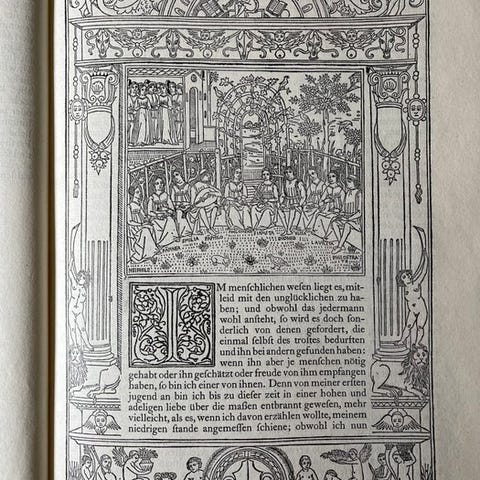 EMILIA
NEIPHILE
IM menſchlichen weſen liegt es, mit-
leid mit den unglücklichen zu ha-
ben; und obwohl das jedermann
wohl anſteht, ſo wird es doch ſon-
derlich von denen gefordert, die
einmal ſelbſt des troſtes bedurften
und ihn bei andern gefunden haben:
wenn ihn aber je menſchen nötig
gehabt oder ihn geſchätzt oder freude von ihm empfangen
haben, ſo bin ich einer von ihnen. Denn von meiner erſten
jugend an bin ich bis zu dieſer zeit in einer hohen und
adeligen liebe über die maßen entbrannt geweſen, mehr
vielleicht, als es, wenn ich davon erzählen wollte, meinem
niedrigen ſtande angemeſſen ſchiene; obwohl ich nun